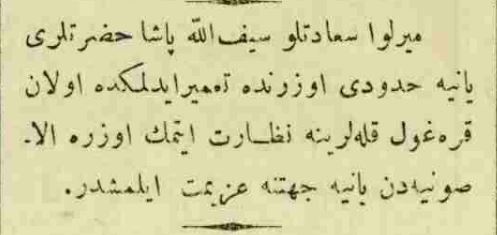 میرلوا سعادتلو سیف‌الله پاشا حضرتلری
یانیه حدودی اوزرنده تعمیر ایدلمکده اولان
قره‌غول قله‌لرینه نظارت ایتمك اوزره الا-
صونیه‌دن یانیه جهتنه عزیمت ایلمشدر.